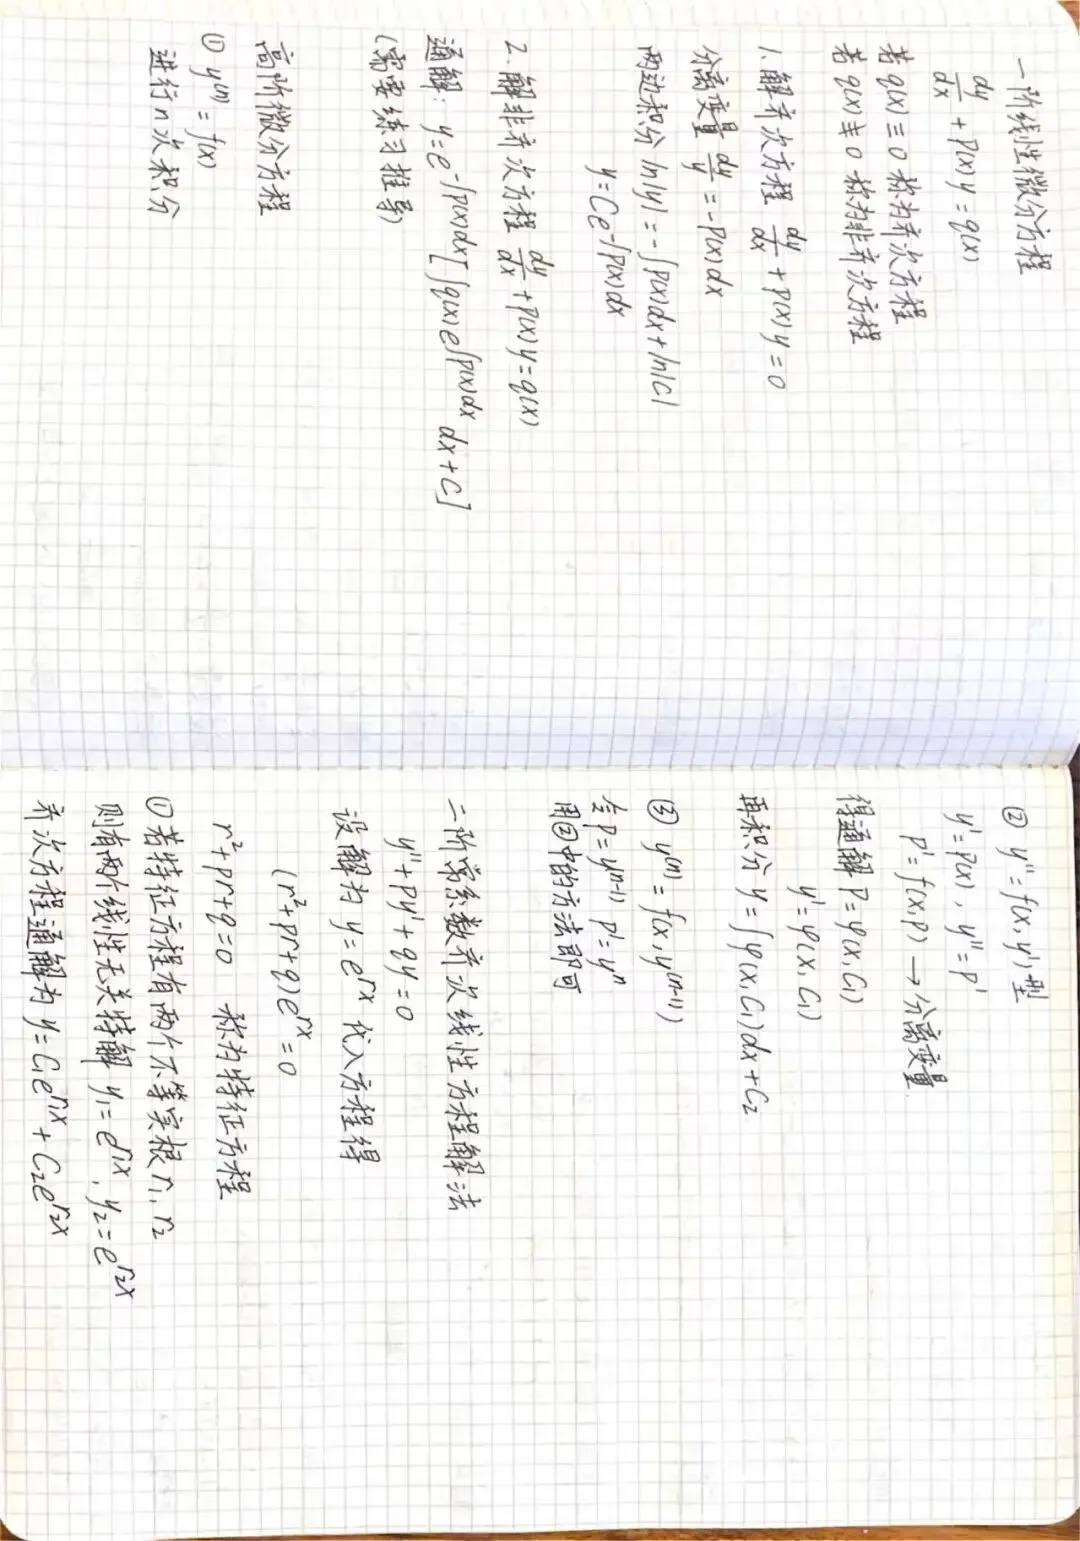 一阶线性微分方程
dy/dx + P(x)y = q(x)
若q(x)≡0 称为齐次方程
若q(x)≢0 称为非齐次方程
1.解齐次方程 dy/dx + P(x)y = 0
分离变量 dy/y = -P(x)dx
两边积分 ln|y| = -∫P(x)dx + ln|C|
y = Ce^{-∫P(x)dx}
2.解非齐次方程 dy/dx + P(x)y = q(x)
通解: y = e^{-∫P(x)dx}[∫q(x)e^{∫P(x)dx}dx + C]
(需要练习推导)
高阶微分方程
① y^{(n)} = f(x)
进行n次积分
② y'' = f(x, y')型
y' = P(x), y'' = P'
P' = f(x, P) → 分离变量
得通解 P = φ(x, C₁)
y' = φ(x, C₁)
再积分 y = ∫φ(x, C₁)dx + C₂
③ y^{(n)} = f(x, y^{(n-1)})
令P = y^{(n-1)} P' = y^n
用②中的方法即可
二阶常系数齐次线性方程解法
y'' + py' + qy = 0
设解为 y = e^{rx} 代入方程得
(r² + pr + q)e^{rx} = 0
r² + pr + q = 0 称为特征方程
① 若特征方程有两个不等实根 r₁, r₂
则有两个线性无关特解 y₁ = e^{r₁x}, y₂ = e^{r₂x}
齐次方程通解为 y = C₁e^{r₁x} + C₂e^{r₂x}